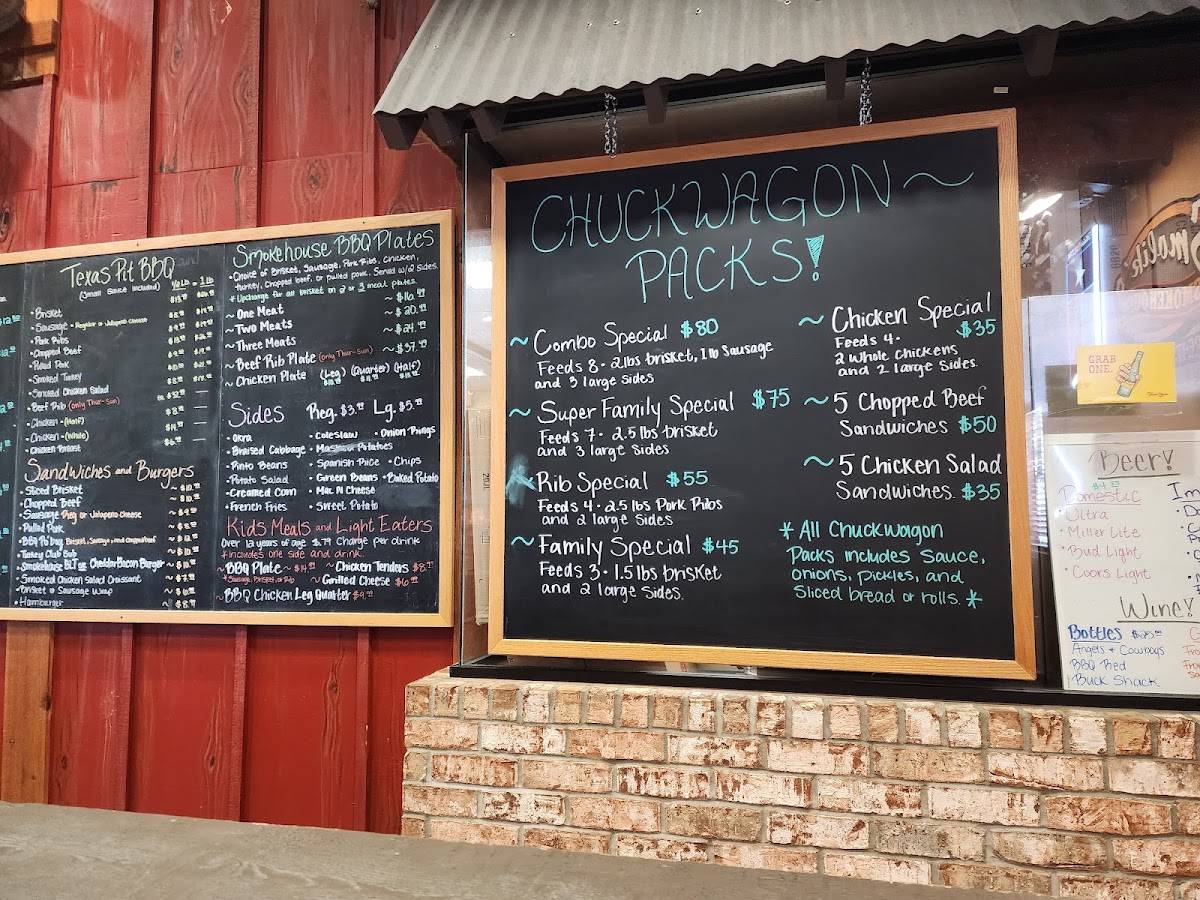 Texas Pit BBQ
(Small Sauce Included)
1/2 Lb - 1 lb
• Brisket
• Sausage • Regular or Jalapeno Cheese
• Pork Ribs
• Chopped Beef
• Pulled Pork
• Smoked Turkey
• Smoked Chicken Salad
• Beef Rib (only Thur-Sun)
• Chicken • (Half)
• Chicken • (Whole)
• Chicken Breast
Sandwiches and Burgers
• Sliced Brisket
• Chopped Beef
• Sausage Reg or Jalapeno Cheese
• Pulled Pork
• BBQ Po boy Brisket, Sausage, and Chopped beef
• Turkey Club Sub
• Smokehouse BLT or Cheddar Bacon Burger
• Smoked Chicken Salad Croissant
• Brisket or Sausage Wrap
• Hamburger
Smokehouse BBQ Plates
• Choice of Brisket, Sausage, Pork Ribs, Chicken,
turkey, Chopped beef, or pulled pork. Served w/2 sides.
* Upcharge for all brisket on 2 or 3 meat plates
~ One Meat ~ $16.99
~ Two Meats ~ $20.99
~ Three Meats ~ $24.99
~ Beef Rib Plate (only Thur-Sun) ~ $37.99
~ Chicken Plate (Leg) (Quarter) (Half)
Sides Reg. $3.99 Lg. $5.99
• Okra • Coleslaw • Onion Rings
• Braised Cabbage • Mashed Potatoes
• Pinto Beans • Spanish Rice • Chips
• Potato Salad • Green Beans • Baked Potato
• Creamed Corn • Mac N Cheese
• French Fries • Sweet Potato
Kids Meals and Light Eaters
Over 12 years of age $.79 Charge per drink
* Includes one side and drink.
~ BBQ Plate ~ $14.99 ~ Chicken Tenders
* Sausage, Brisket or Rib ~ Grilled Cheese
~ BBQ Chicken Leg Quarter
CHUCKWAGON ~
PACKS!
~ Combo Special $80
Feeds 8 • 2lbs brisket, 1 lb Sausage
and 3 large sides
~ Super Family Special $75
Feeds 7 • 2.5 lbs brisket
and 3 large sides
Rib Special $55
Feeds 4 • 2.5 lbs Pork Ribs
and 2 large sides
~ Family Special $45
Feeds 3 • 1.5 lbs brisket
and 2 large sides.
~ Chicken Special
$35
Feeds 4 •
2 whole chickens
and 2 large sides.
~ 5 Chopped Beef
Sandwiches $50
~ 5 Chicken Salad
Sandwiches. $35
* All Chuckwagon
Packs includes sauce,
onions, pickles, and
sliced bread or rolls. *
GRAB
ONE.
Beer!
Domestic
• Ultra
• Miller Lite
• Bud Light
• Coors Light
Wine!
Bottles
Angels & Cowboys
BBQ Red
Buck Shack